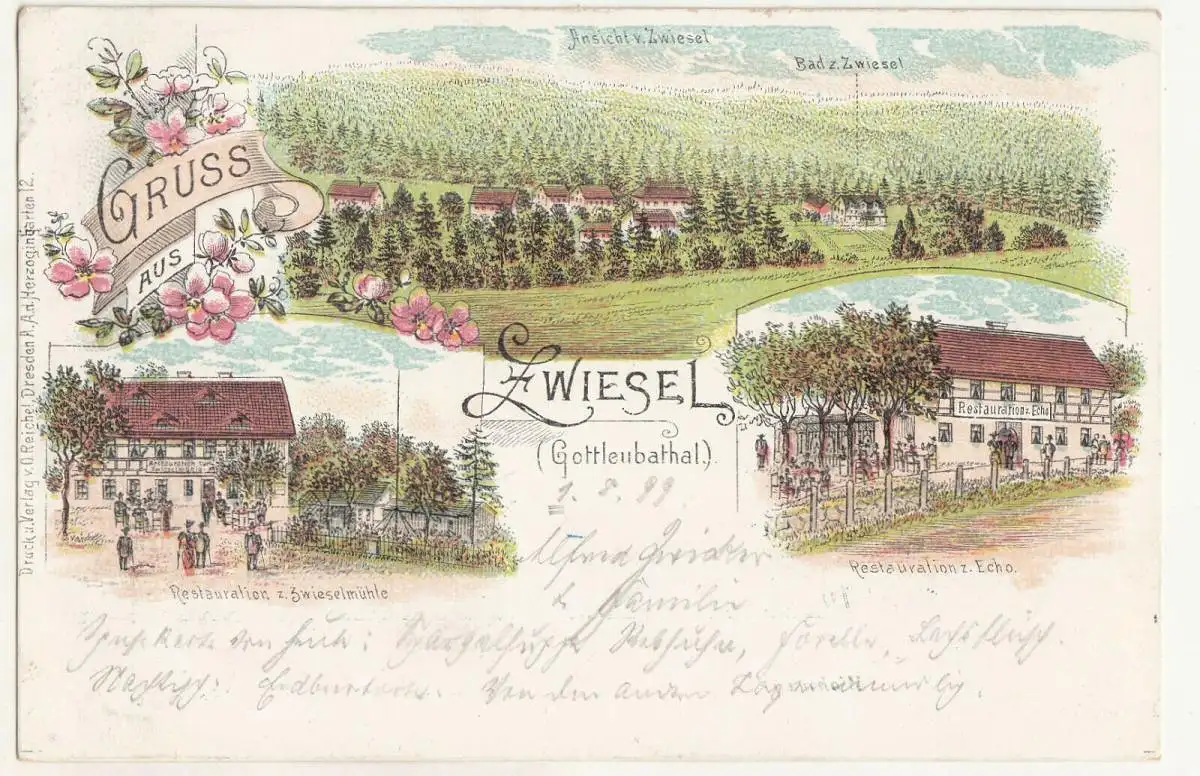 Ansicht v. Zwiesel
Bad z. Zwiesel
GRUSS
AUS
ZWIESEL
(Gottleubathal.)
Restauration z. Echo
Restauration zur
Restauration z. Zwieselmühle
Restauration z. Echo.
Druck u. Verlag v. O. Reichel, Dresden A, A.d. Herzogingarten 12.
1. 8. 99
Alfred
& Familie
Speisekarte von heute: Spargelsuppe Rebhuhn, Forelle, Lachsfleisch.
Nachtisch: Erdbeertorte. Von den andern